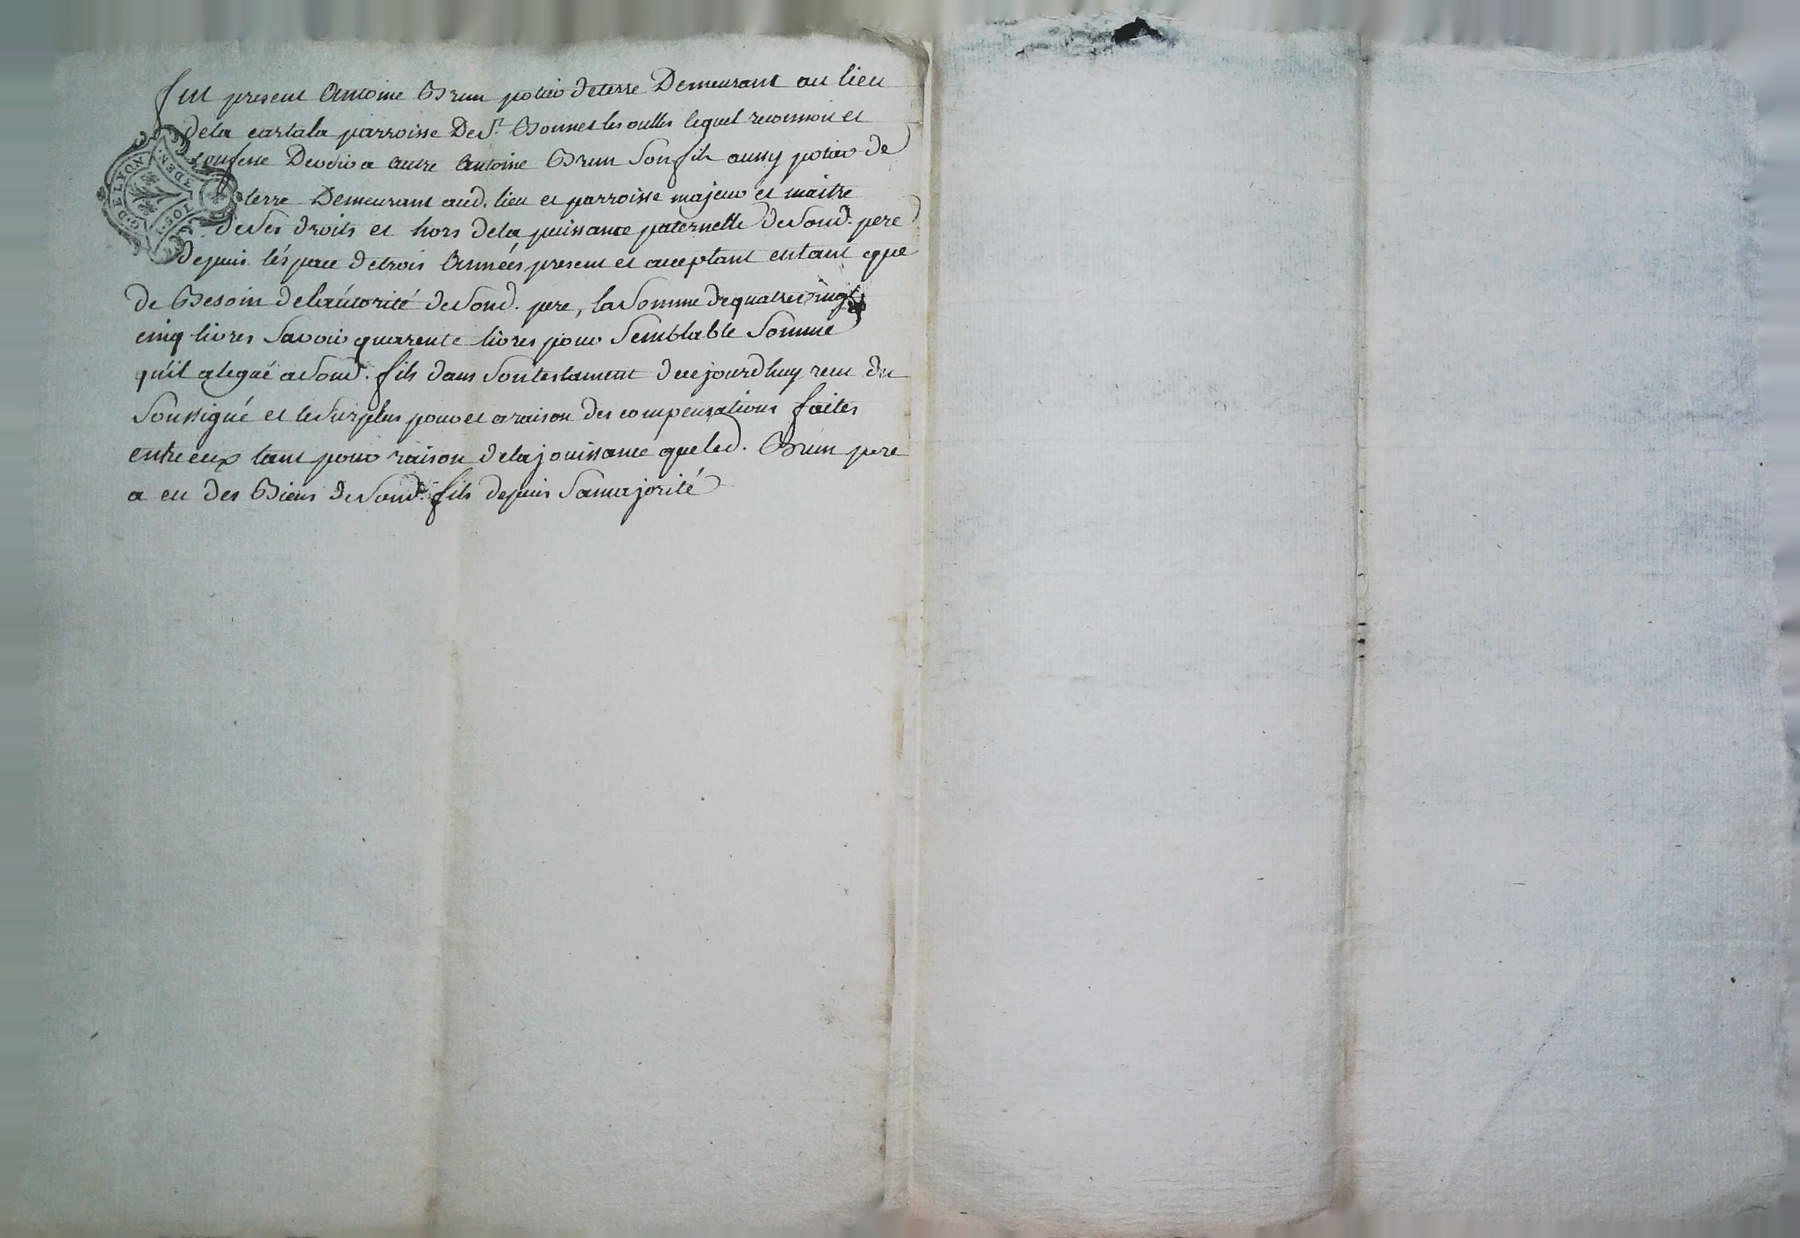 fut present Antoine Brun potier de terre Demeurant au lieu
de la cartala parroisse De St. Bonnet les oulles lequel reconnoit et
confesse Devoir a autre Antoine Brun Son fils aussy potier de
terre Demeurant aud. lieu et parroisse majeur et maitre
de Ses droits et hors de la puissance paternelle de Sond. pere
depuis l'éspace de trois Années present et acceptant en tant que
de Besoin de l'autorité de Sond. pere, la Somme de quatre vingt
cinq livres Savoir quarente livres pour Semblable Somme
qu'il a legué a Sond. fils dans Son testament de cejourdhuy recu du
Soussigné et le Surplus pour et a raison des compensations faites
entre eux tant pour raison de la jouissance que led. Brun pere
a eu des Biens de Sond. fils depuis Sa majorité
G. DE LYON